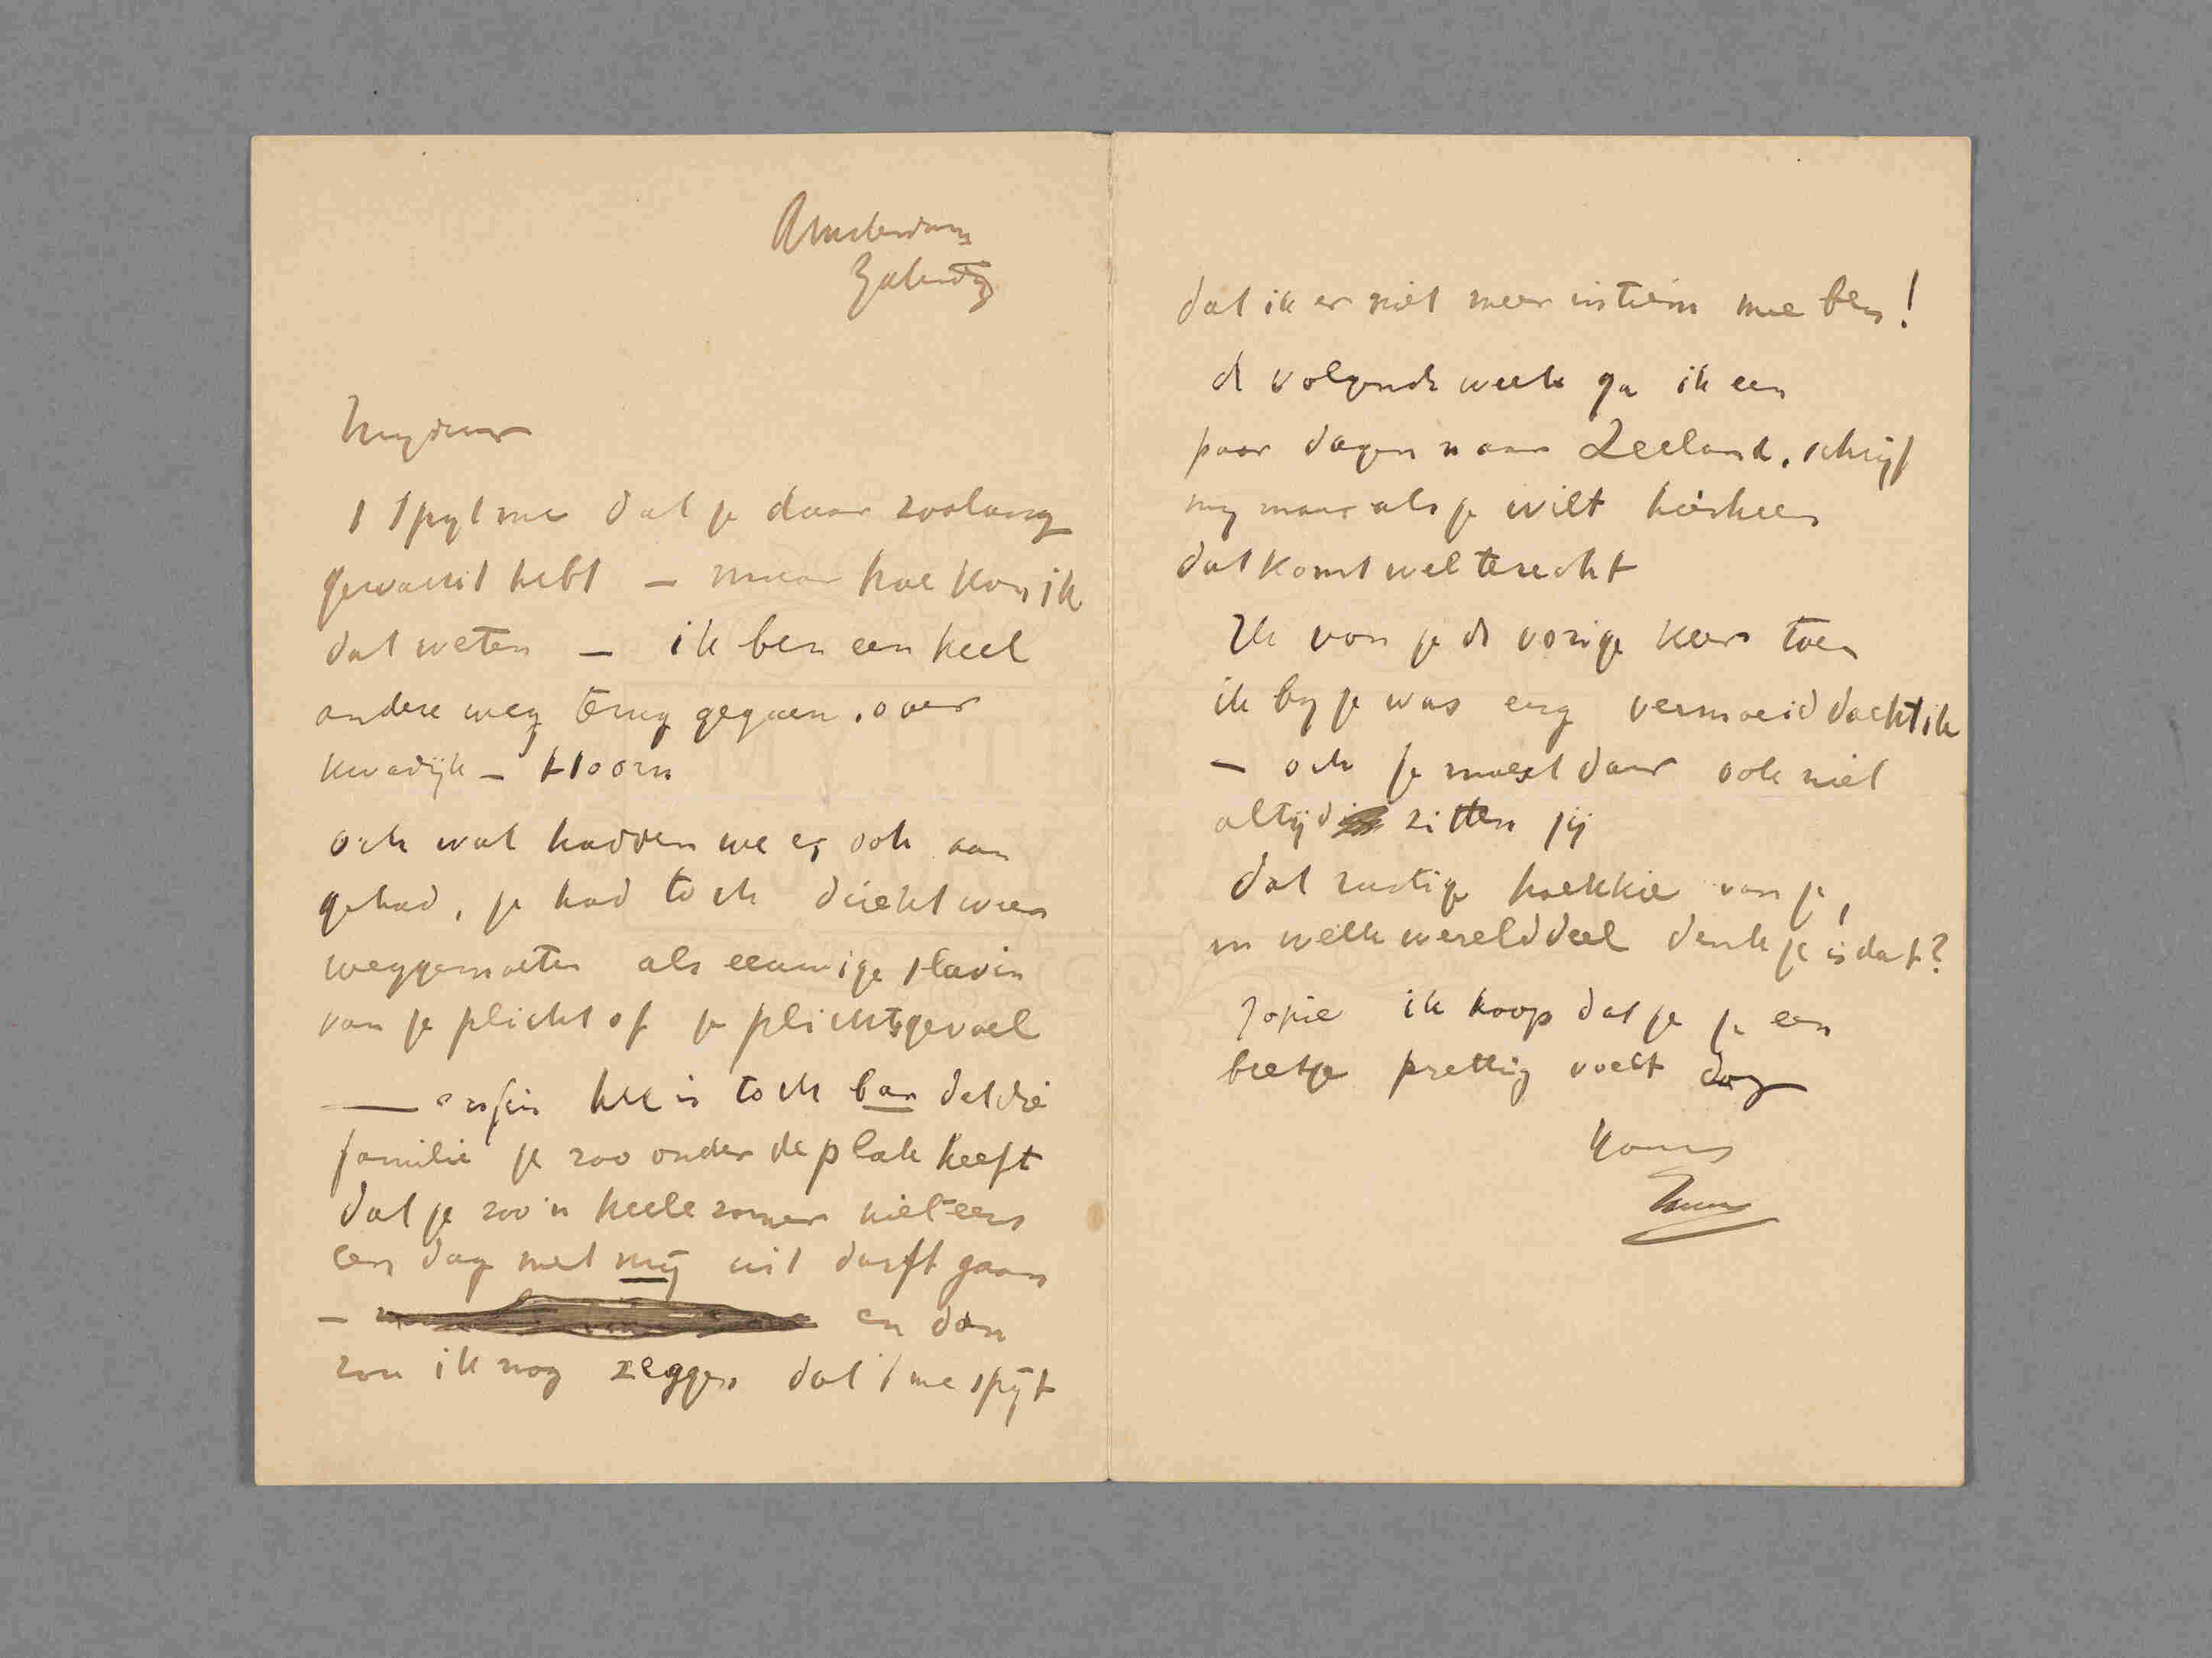 Amsterdam
Zaterdag
't Spyt me dat je daar zoolang
gewacht hebt – maar hoe kon ik
dat weten – ik ben een heel
andere weg terug gegaan. over
Kwadijk – Hoorn
och wat hadden we er ook aan
gehad, je had toch direkt weer
weggemoeten als eeuwige slavin
van je plicht of je plichtsgevoel
— enfin het is toch bar dat die
familie je zoo onder de plak heeft
dat je zoo'n heele zomer niet eens
een dag met mij uit durft gaan
– en dan
zou ik nog zeggen dat 't me spijt
dat ik er niet meer intiem mee ben!
de volgende week ga ik een
paar dagen naar Zeeland. schrijf
my maar als je wilt hierheen
dat komt wel terecht
Ik von je de vorige keer toen
ik by je was erg vermoeid dacht ik
– och je moest daar ook niet
altijd zitten jij
dat rustige hoekkie van je,
in welk werelddeel denk je is dat?
Jopie ik hoop dat je je een
beetje prettig voelt dag